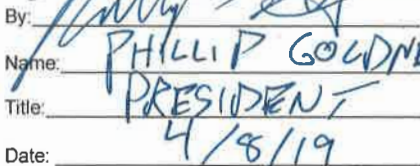 By:
Name: PHILLIP GOLDN
Title: PRESIDENT
Date: 4/8/19